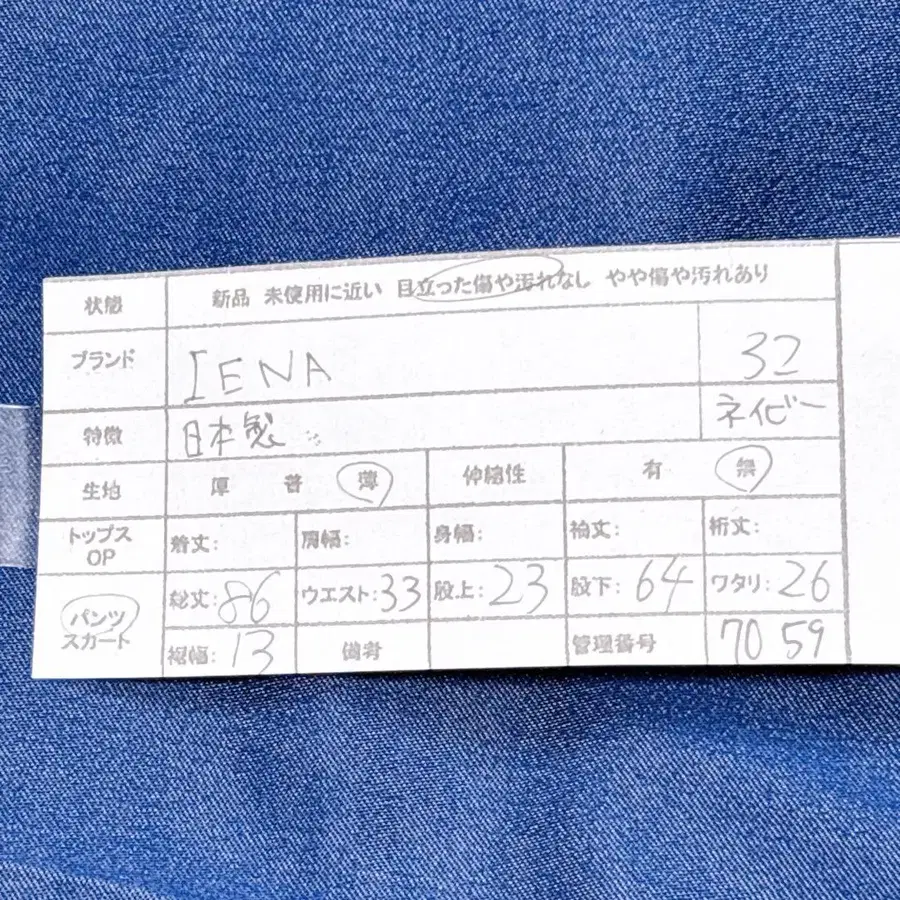 状態 新品 未使用に近い 目立った傷や汚れなし やや傷や汚れあり
ブランド IENA 32
特徴 日本製 ネイビー
生地 厚 普 薄 伸縮性 有 無
トップス OP 着丈: 肩幅: 身幅: 袖丈: 裄丈:
パンツ スカート 総丈:86 ウエスト:33 股上:23 股下:64 ワタリ:26
裾幅:13 備考 管理番号 7059